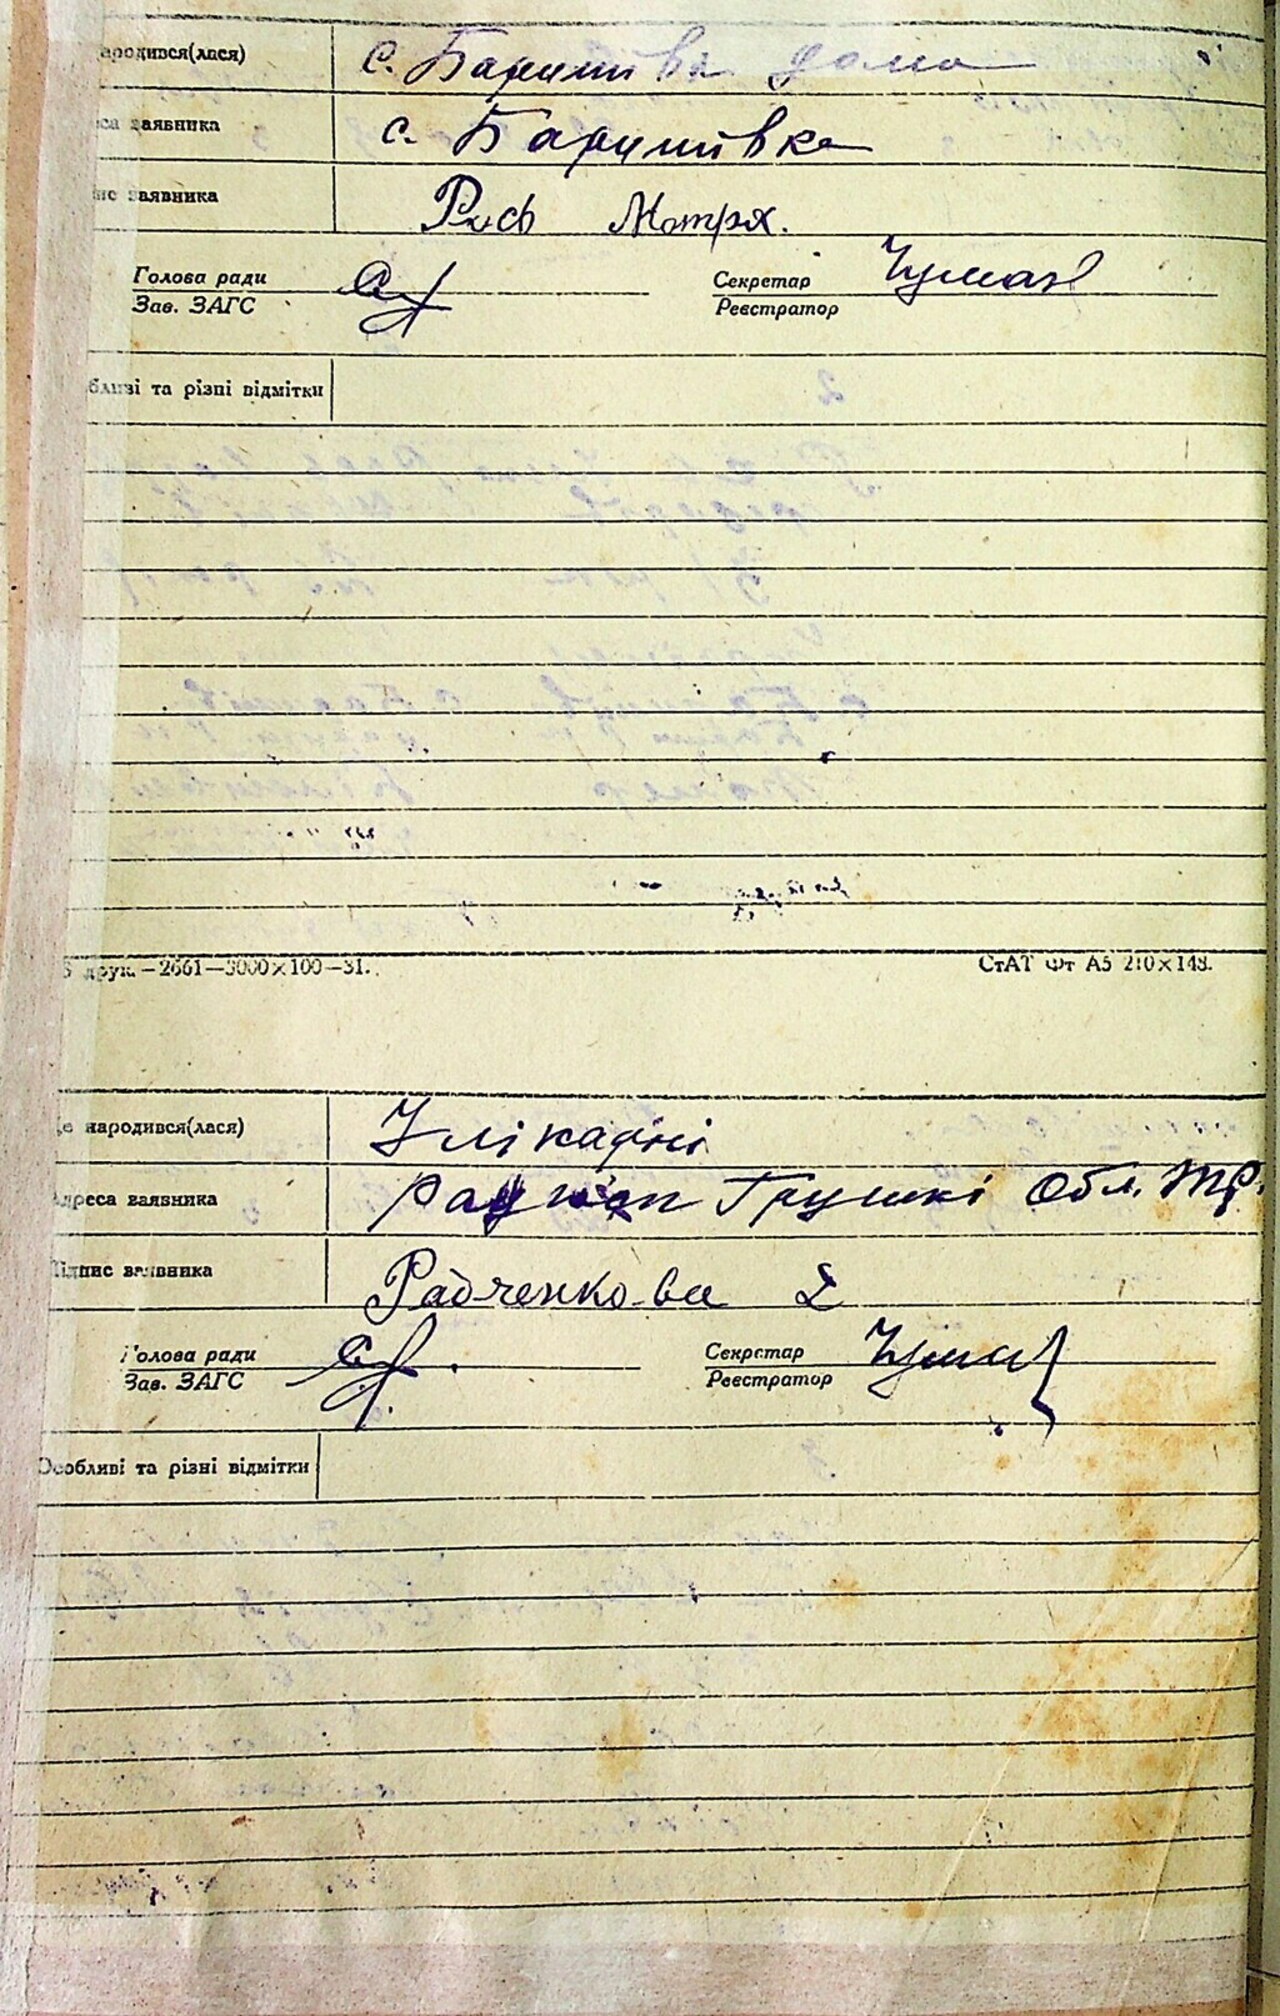 ародився(лася) с. Баришівка дома
са заявника с. Баришівка
ис заявника Рись Мотря.
Голова ради Секретар Чумак
Зав. ЗАГС Реєстратор
бливі та різні відмітки
друк.—2661—3000×100—31.
СтАТ Фт А5 210×148.
Де народився(лася) У лікарні
Адреса заявника Грушкі Обл.
Підпис заявника Радченкова
Голова ради Секретар Чумак
Зав. ЗАГС Реєстратор
Особливі та різні відмітки